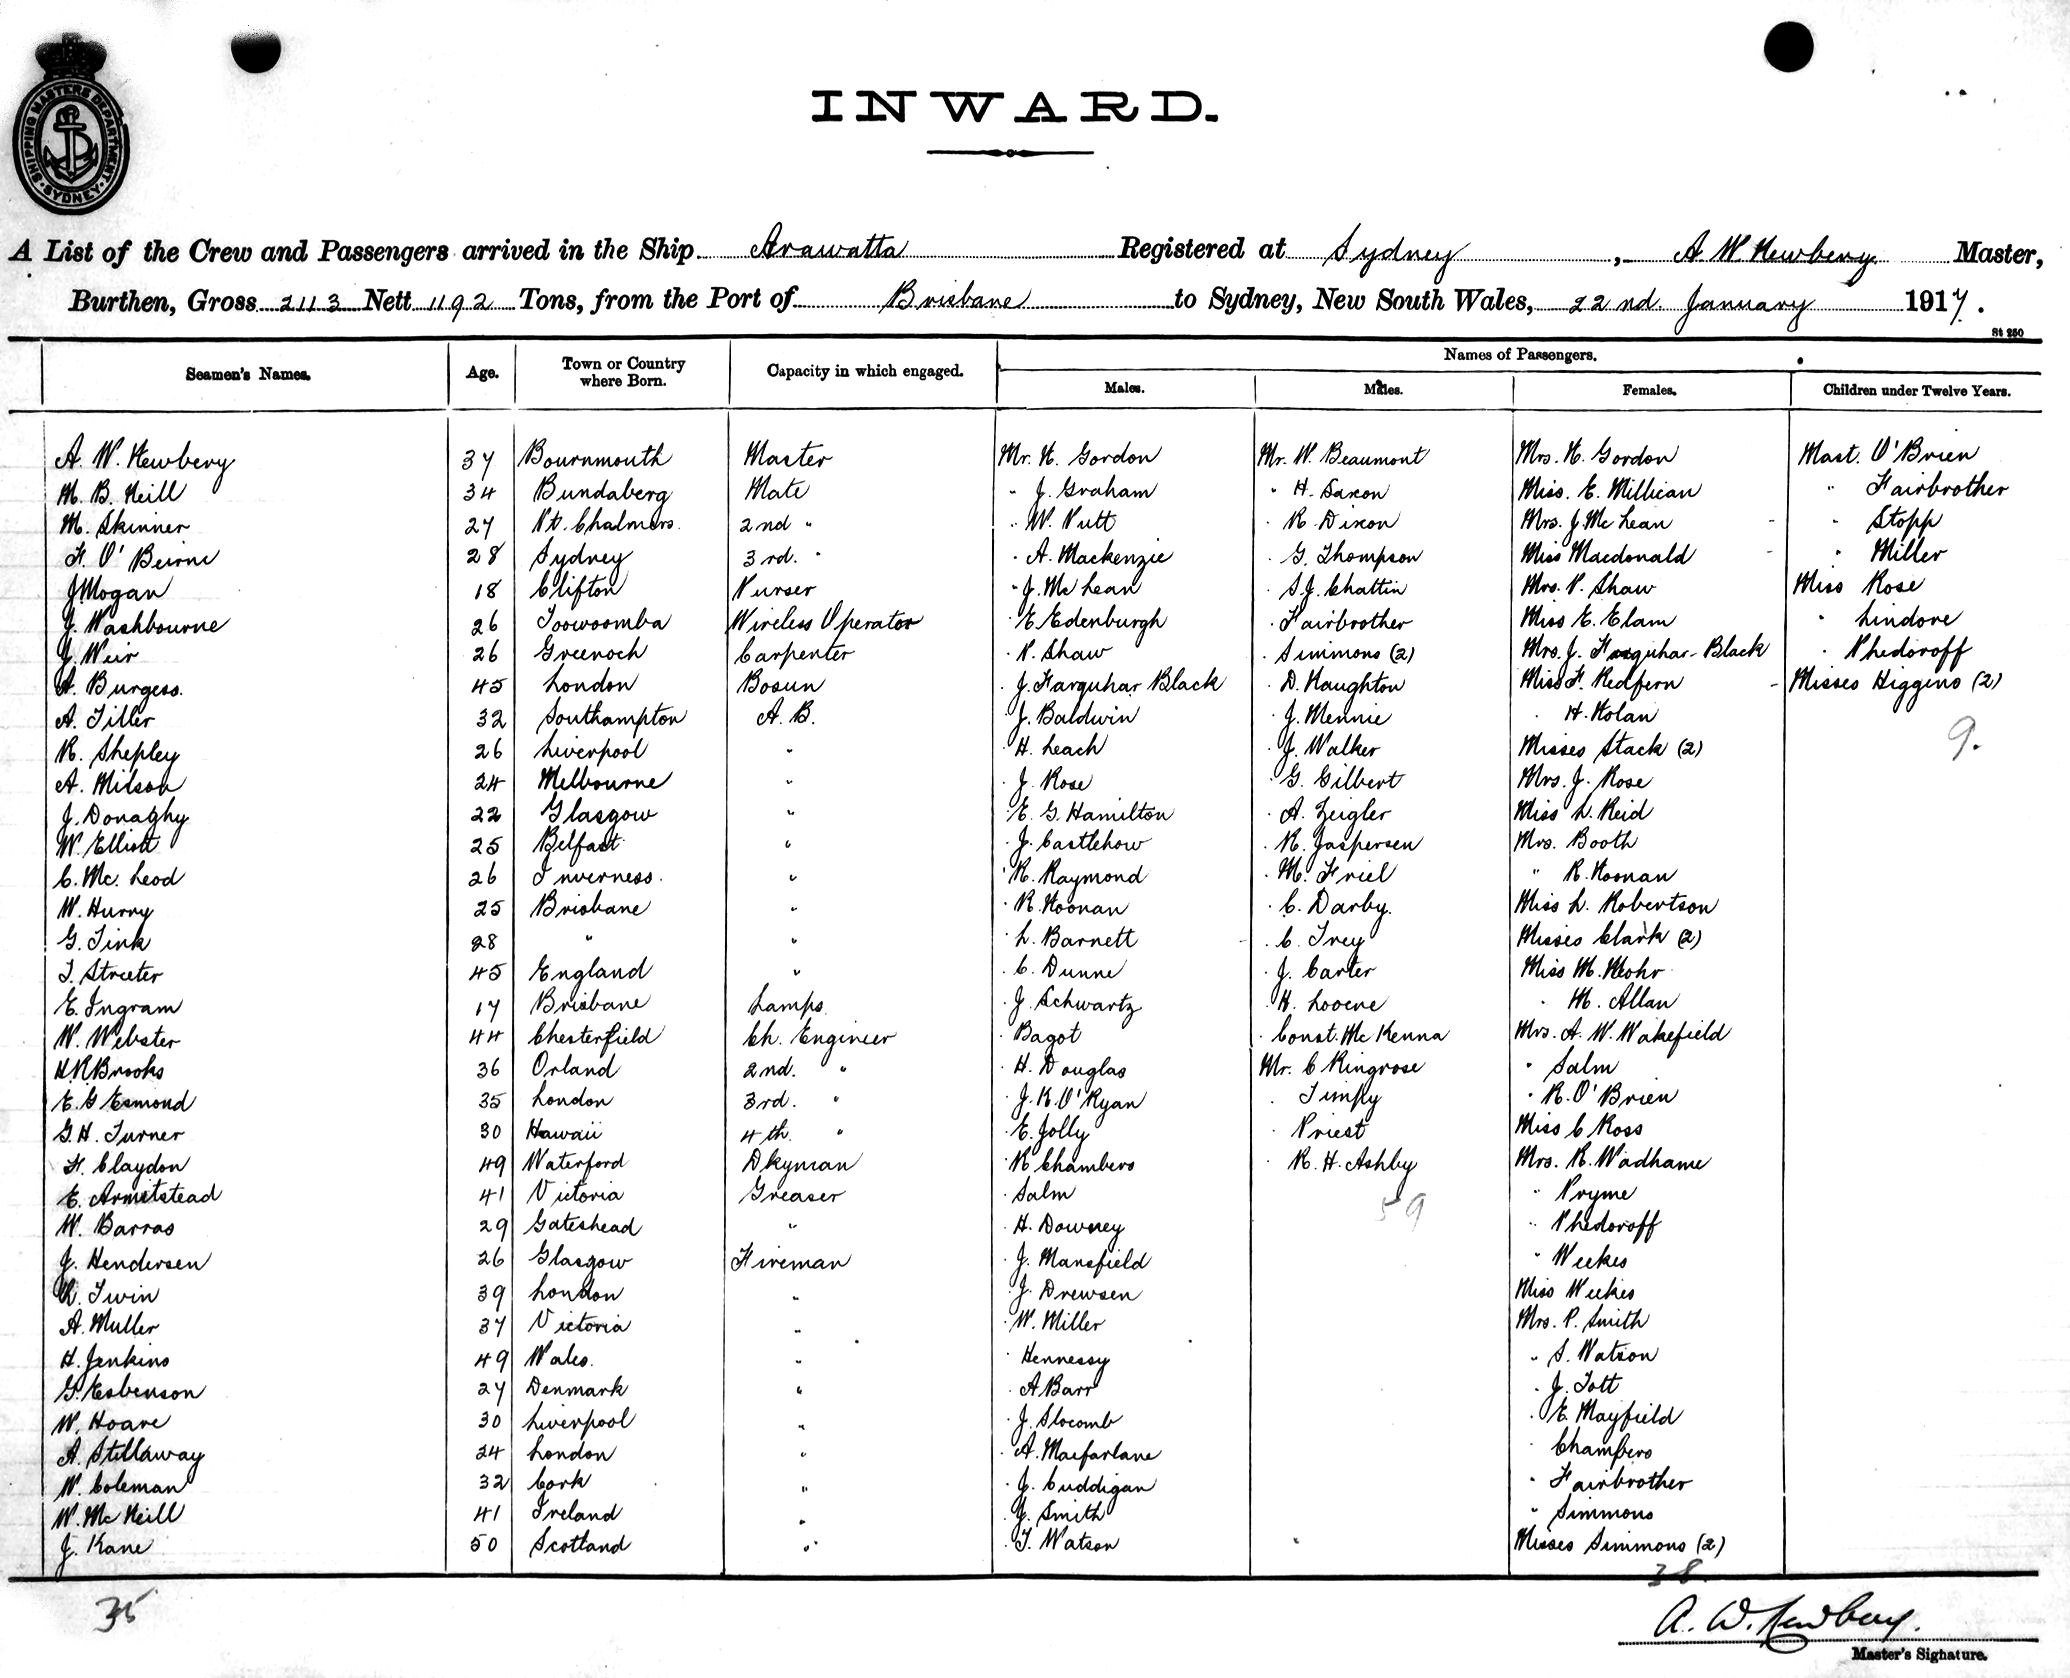 SHIPPING MASTERS DEPARTMENT. SYDNEY
INWARD.
A List of the Crew and Passengers arrived in the Ship Arawatta Registered at Sydney, A. W. Newbery Master,
Burthen, Gross 2113 Nett 1192 Tons, from the Port of Brisbane to Sydney, New South Wales, 22nd. January 1917.
St 250
Names of Passengers.
Seamen's Names. Age. Town or Country where Born. Capacity in which engaged. Males. Males. Females. Children under Twelve Years.
A. W. Newbery 37 Bournmouth Master Mr. N. Gordon Mr. W. Beaumont Mrs. N. Gordon Mast. O'Brien
M. B. Neill 34 Bundaberg Mate " J. Graham " H. Saxon Miss. E. Millican " Fairbrother
M. Skinner 27 Pt. Chalmers. 2nd " " W. Nutt " R. Dixon Mrs. J. McLean " Stopp
F. O'Beirne 28 Sydney 3rd. " " A. Mackenzie " G. Thompson Miss Macdonald " Miller
J Mogan 18 Clifton Purser " J. McLean " S. J. Chattin Mrs. P. Shaw Miss Rose
J. Washbourne 26 Toowoomba Wireless Operator " E Edenburgh " Fairbrother Miss E. Elam " Lindore
J. Weir 26 Greenock Carpenter " P. Shaw " Simmons (2) Mrs. J. Farquhar-Black " Phedoroff
A. Burgess. 45 London Bosun " J. Farquhar Black " D. Naughton Miss F. Redfern Misses Higgins (2)
A. Tiller 32 Southampton A. B. " J. Baldwin " J. Mennie " H. Nolan
R. Shepley 26 Liverpool " " H. Leach " J. Walker Misses Stack (2) 9.
A. Milsob 24 Melbourne " " J. Rose " G. Gilbert Mrs. J. Rose
J. Donaghy 22 Glasgow " " E. G. Hamilton " A. Zeigler Miss L. Reid
W. Elliott 25 Belfast " " J. Castlehow " R. Jaspersen Mrs. Booth
C. Mc. Leod 26 Inverness. " " R. Raymond " M. Friel " R. Noonan
W. Hurry 25 Brisbane " " R. Noonan " C. Darby. Miss L. Robertson
G. Tink 28 " " " L. Barnett " C. Ivey Misses Clark (2)
T. Streeter 45 England " " C. Dunne " J. Carter Miss M. Mohr
E. Ingram 17 Brisbane Lamps. " J. Schwartz " H. Looene " M. Allan
W. Webster 44 Chesterfield Ch. Engineer " Bagot " Const. McKenna Mrs. A. W. Wakefield
H R Brooks 36 Orland 2nd. " " H. Douglas Mr. C Ringrose " Salm
E. G Esmond 35 London 3rd. " " J. R. O'Ryan " Timply " R. O'Brien
G. H. Turner 30 Hawaii 4th. " " E. Jolly " Priest Miss C Ross
F. Claydon 49 Waterford Dkyman " R Chambers " R. H. Ashby Mrs. R. Wadhame
E. Armitstead 41 Victoria Greaser " Salm 59 " Pryme
W. Barras 29 Gateshead " " H. Downey " Phedoroff
J. Hendersen 26 Glasgow Fireman " J. Mansfield " Weekes
R. Twin 39 London " " J. Drewsen Miss Weekes
A. Muller 37 Victoria " " W. Miller Mrs. P. Smith
H. Jenkins 49 Wales. " " Hennessy " S. Watson
G. Esbenson 27 Denmark " " A Barr " J. Tott
W. Hoare 30 Liverpool " " J. Slocomb " E. Mayfield
A. Stillaway 24 London " " A. Macfarlane " Chambers
W. Coleman 32 Cork " " J. Cuddigan " Fairbrother
W. McNeill 41 Ireland " " J. Smith " Simmons
J. Kane 50 Scotland " " T. Watson Misses Simmons (2)
35 38.
A. W. Newbery.
Master's Signature.